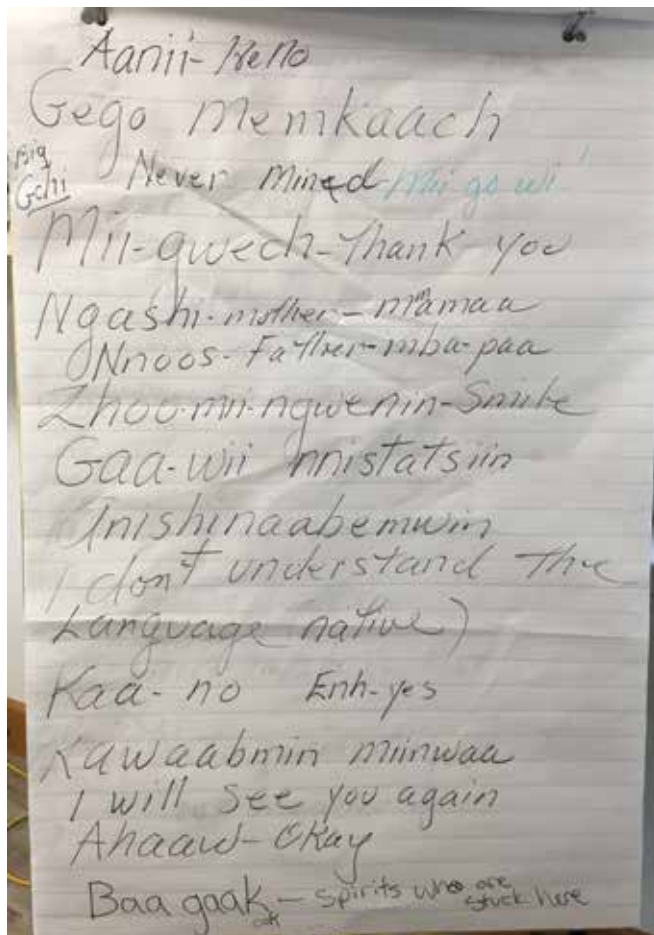 Aanii- Hello
Gego Memkaach
Big
Gchi
Never Mined-Mii go wi!
Mii-gwech-Thank you
Ngashi-mother-mamaa
Nnoos-Father-mba-paa
Zhoo-mii-ngwenin-Smile
Gaa-wii nnistatsiin
Anishinaabemwin
I don't understand the
Language native)
Kaa- no Enh-yes
Kawaabmin miinwaa
I will see you again
Ahaaw-Okay
Baa gaak - spirits who are
stuck here